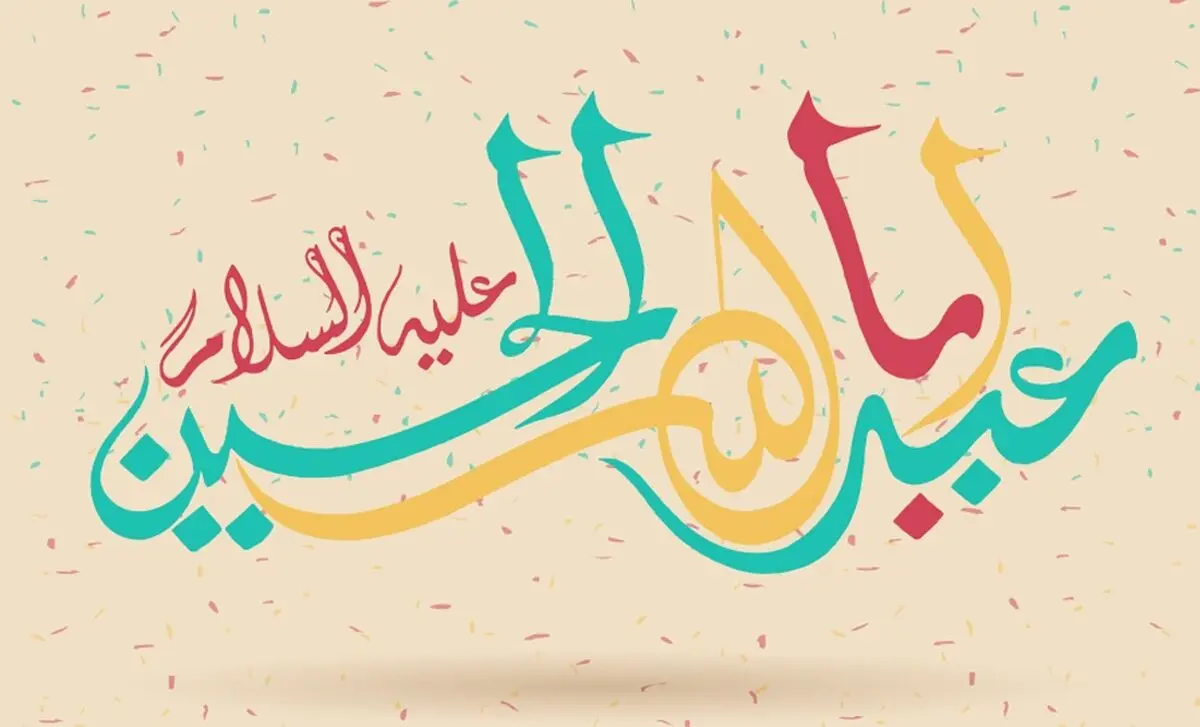 ابا عبد الله الحسين عليه السلام